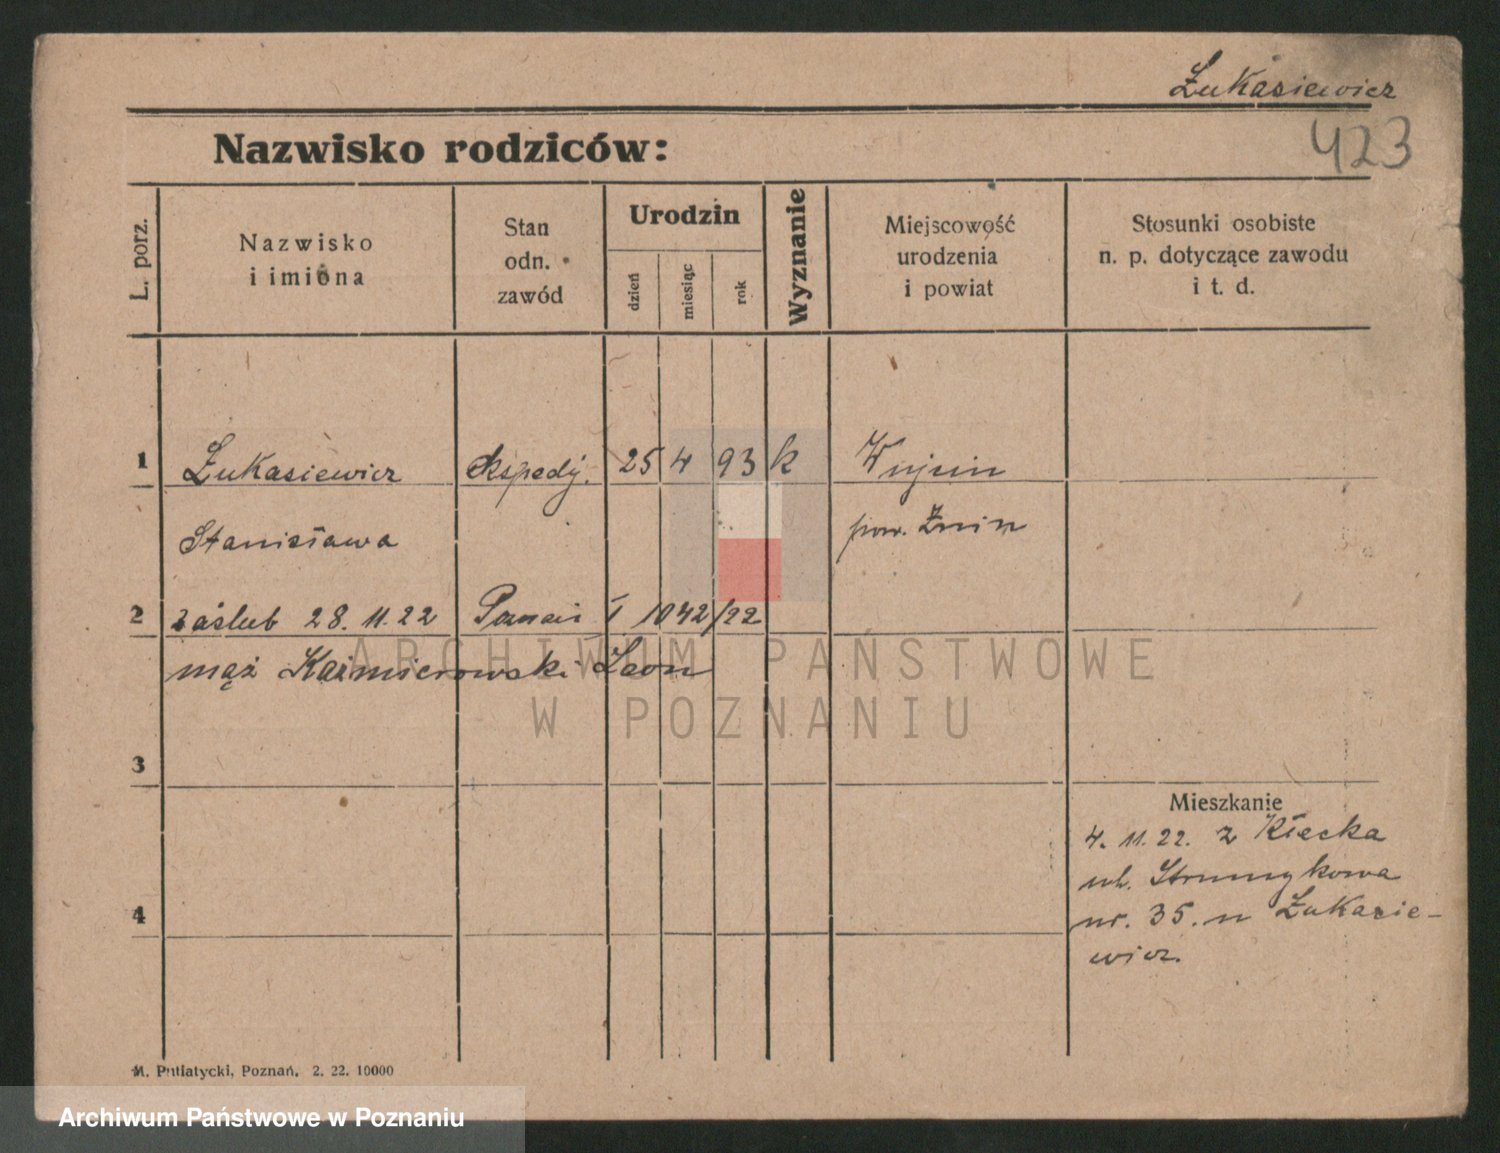 Łukasiewicz
Nazwisko rodziców:
423
L. porz.
Nazwisko
i imiona
Stan
odn.
zawód
Urodzin
dzień
miesiąc
rok
Wyznanie
Miejscowość
urodzenia
i powiat
Stosunki osobiste
n. p. dotyczące zawodu
i t. d.
1 Łukasiewicz ekspedj. 25 4 93 k Wujcin
Stanisława pow. Żnin
2 zaślub 28. 11. 22 Poznań I 1042/22
mąż Kaźmierowski Leon
ARCHIWUM PAŃSTWOWE
W POZNANIU
3
Mieszkanie
4. 11. 22. z Kłecka
ul. Strumykowa
4
nr. 35. u Łukasie-
wicz.
M. Putiatycki, Poznań, 2. 22. 10000
Archiwum Państwowe w Poznaniu